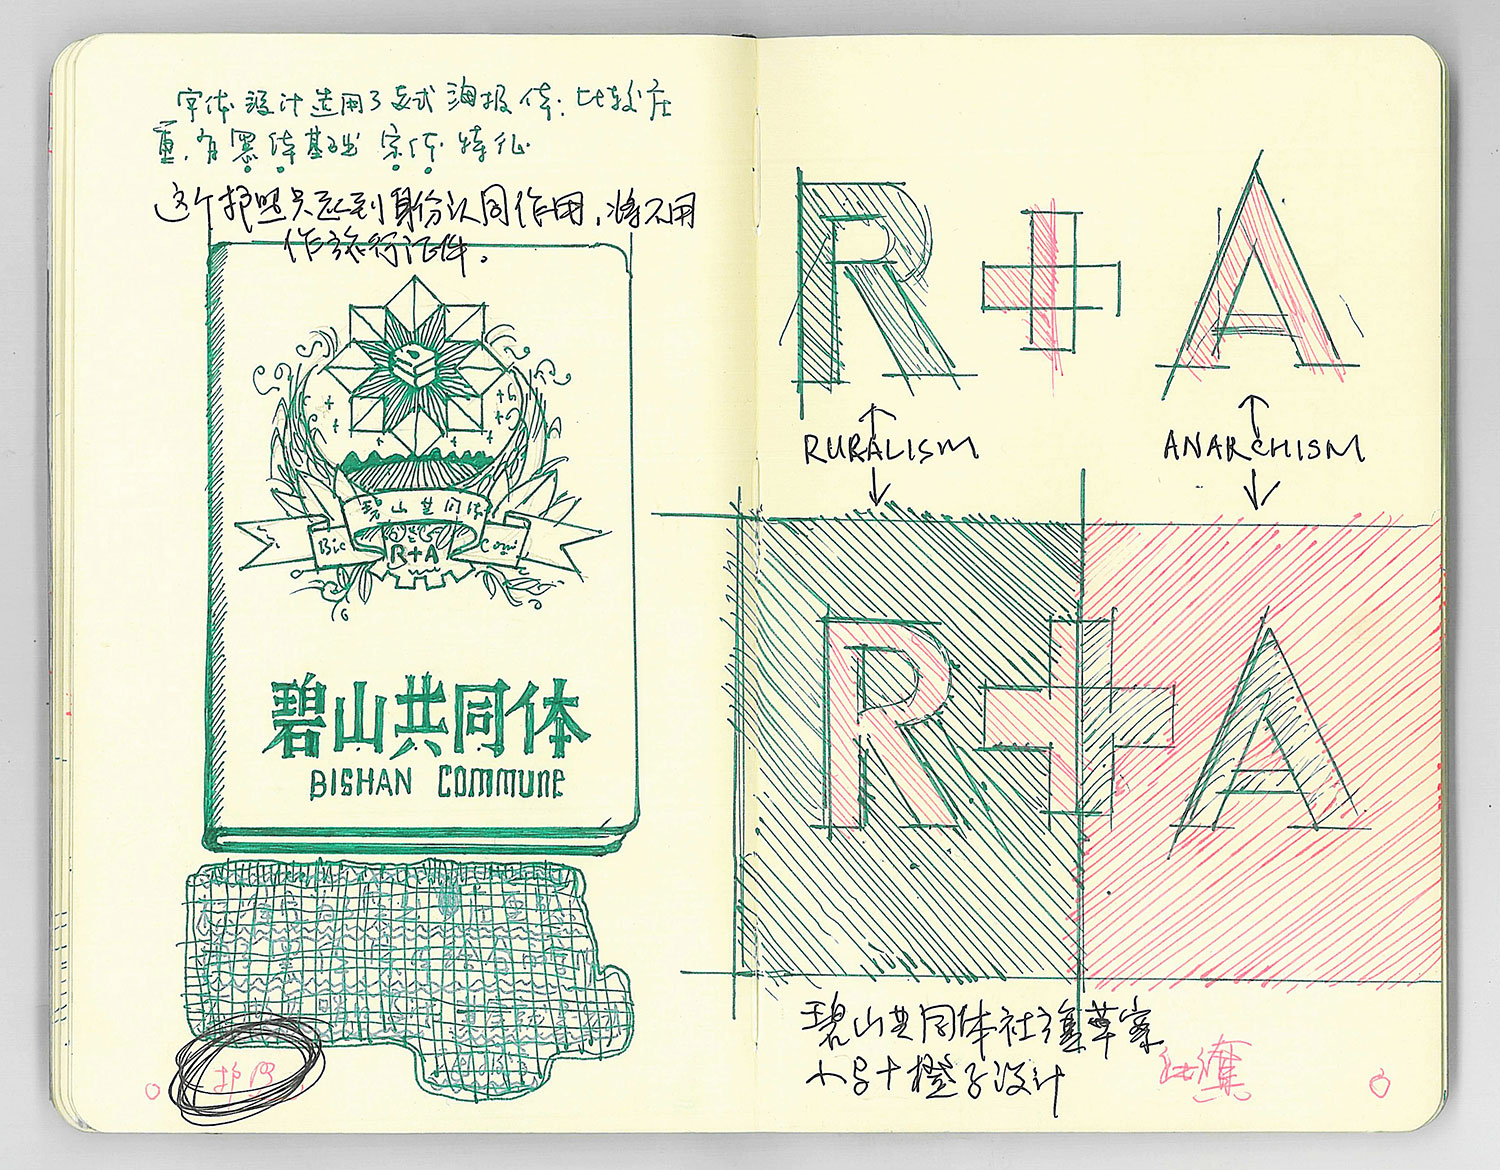 字体设计选用了老式海报体：比较庄
重，有黑体基础 宋体 特征
这个护照只起到身份认同作用，将不用
作旅行证件。
碧山共同体
Bic
R+A
Com
碧山共同体
BISHAN COMMUNE
护照
R+A
RURALISM
ANARCHISM
R+A
碧山共同体社旗草案
小马+橙子设计